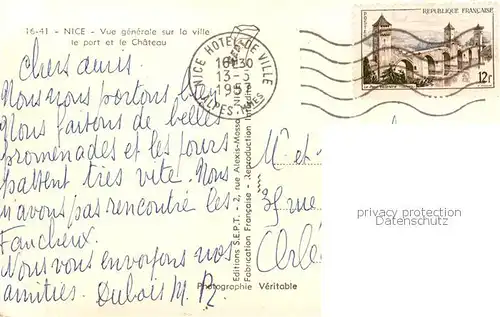 16-41 - NICE - Vue générale sur la ville
le port et le Château
Chers amis.
Nous nous portons bien
Nous faisons de belles
promenades et les jours
passent très vite. Nous
n'avons pas rencontré les
Faucheux.
Nous vous envoyons nos
amities. Dubois M. R.
NICE HOTEL DE VILLE
16H30
13-5
ALPES-MMES
REPUBLIQUE FRANÇAISE
12F
Editions S.E.P.T. - 2, rue Alexis-Mossa, Nice
Fabrication Française - Reproduction Interdite
Photographie Véritable
M. et
rue
privacy protection
Datenschutz